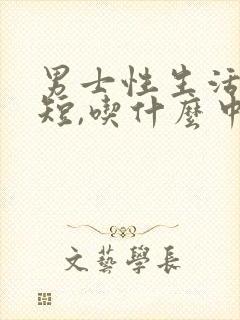 男士性生活
短,喫什麼中
文藝學長